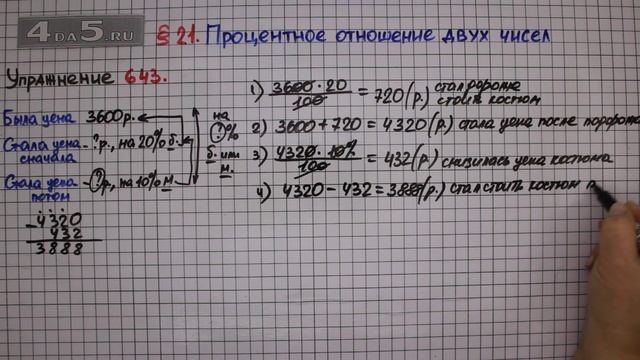 4DA5.RU
§ 21. Процентное отношение двух чисел
Упражнение 643.
Была цена 3600 р.
Стала цена - ? р., на 20% б.
сначала
Стала цена - ? р., на 10% м.
потом
на
? %
б. или
м.
4320
- 432
3888
1) 3600 · 20 / 100 = 720 (р.) стал дороже
стоить костюм
2) 3600 + 720 = 4320 (р.) стала цена после
3) 4320 · 10% / 100 = 432 (р.) снизилась цена костюма
4) 4320 - 432 = 3888 (р.) стал стоить костюм п